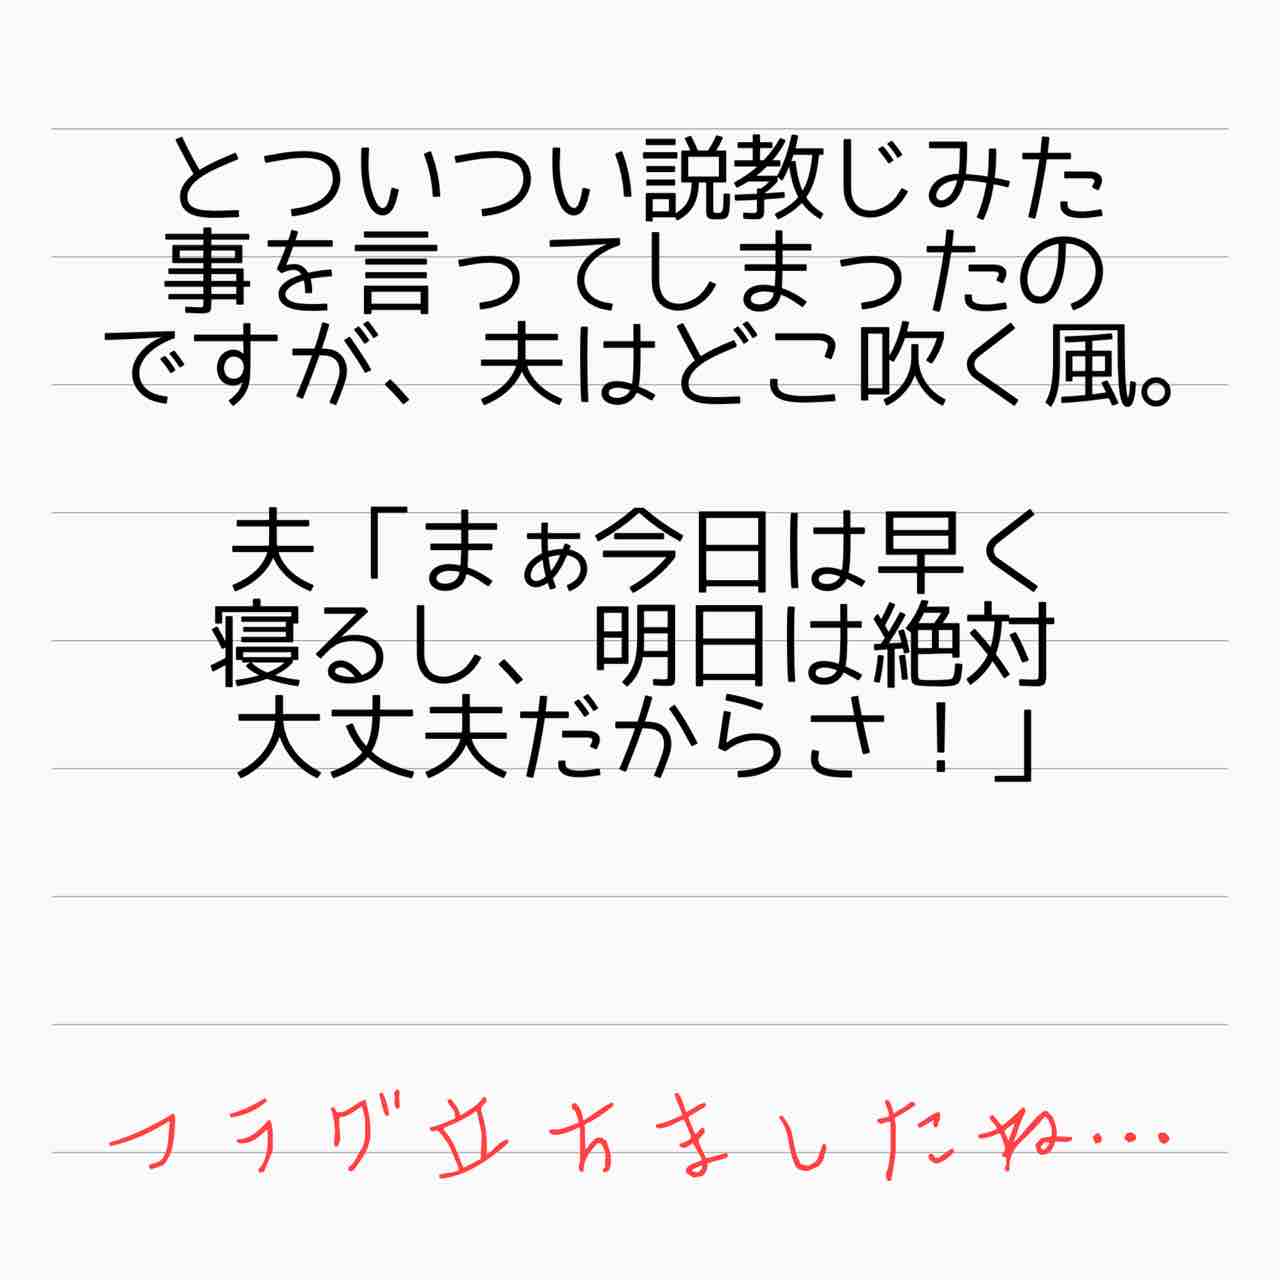 とついつい説教じみた
事を言ってしまったの
ですが、夫はどこ吹く風。
夫「まぁ今日は早く
寝るし、明日は絶対
大丈夫だからさ！」
フラグ立ちましたね…